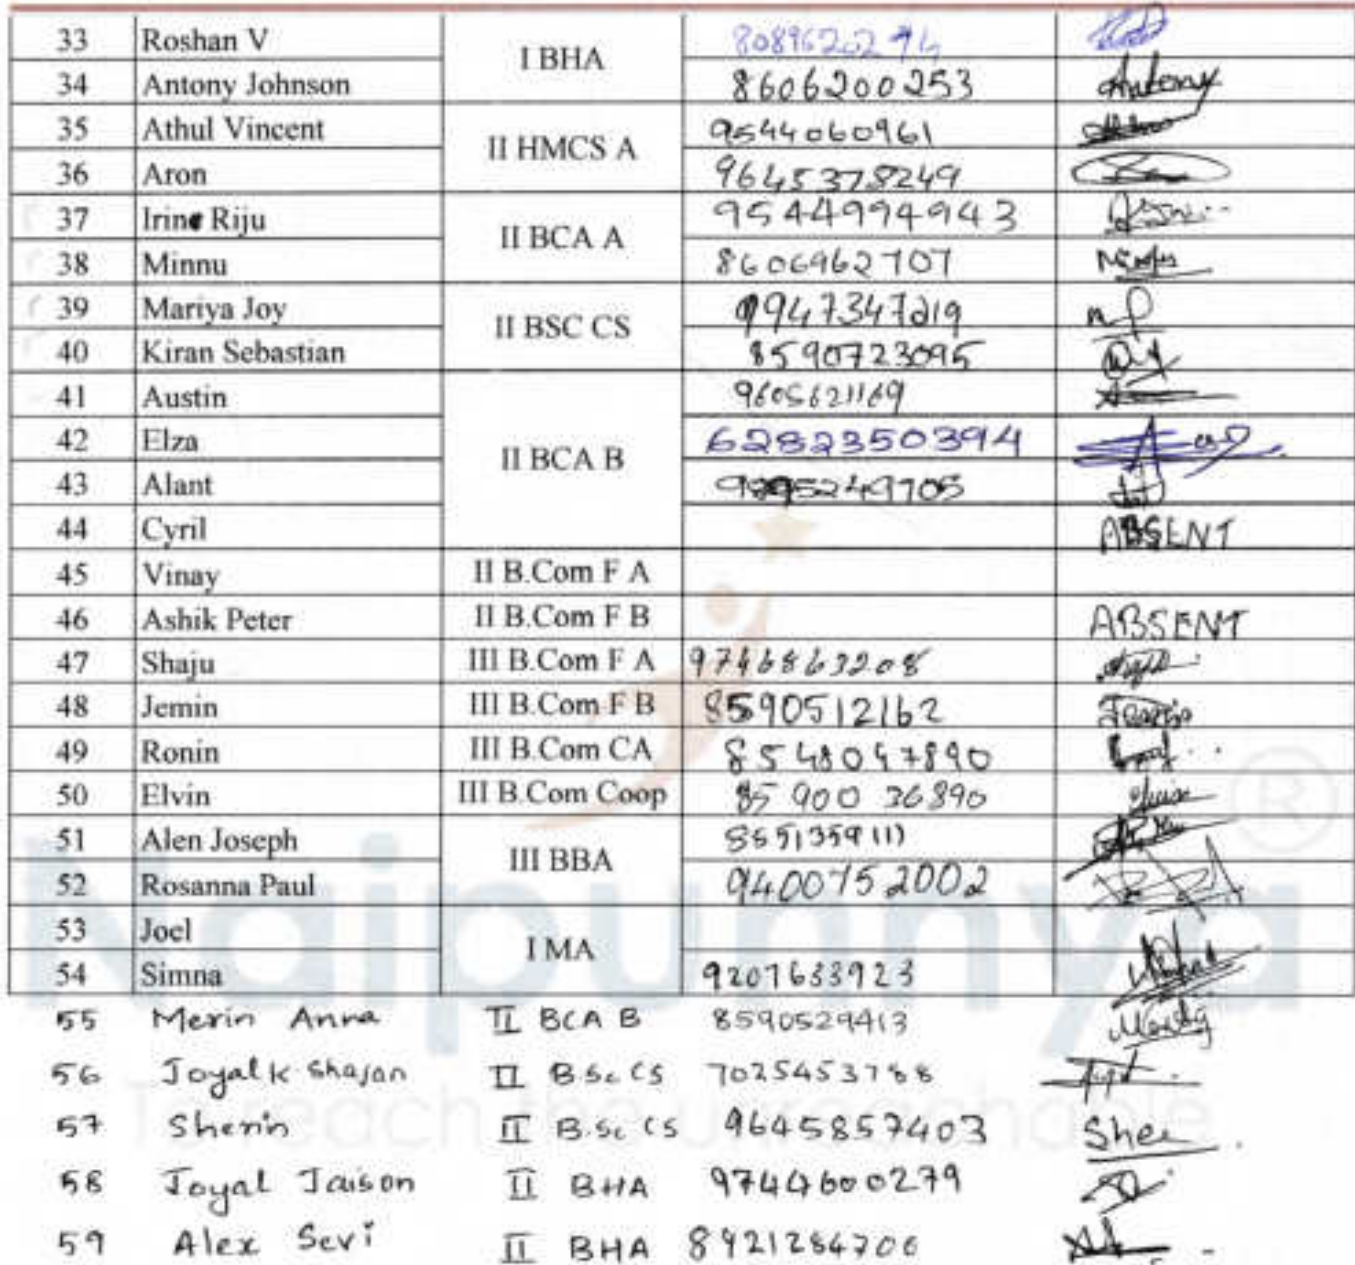 33 Roshan V I BHA
34 Antony Johnson 8606200253 Antony
35 Athul Vincent II HMCS A 9544060961
36 Aron 9645378249
37 Irine Riju II BCA A 9544994943
38 Minnu 8606962707
39 Mariya Joy II BSC CS 9947347219
40 Kiran Sebastian 8590723095
41 Austin II BCA B 9605621169
42 Elza 6282350394
43 Alant 9895249705
44 Cyril ABSENT
45 Vinay II B.Com F A
46 Ashik Peter II B.Com F B ABSENT
47 Shaju III B.Com F A 9746863208
48 Jemin III B.Com F B 8590512162
49 Ronin III B.Com CA 8548047890
50 Elvin III B.Com Coop 85 900 36890
51 Alen Joseph III BBA
52 Rosanna Paul 9400752002
53 Joel I MA
54 Simna 9207633923
55 Merin Anna II BCA B 8590529413
56 Joyal k Shajan II B.Sc CS 7025453788
57 Sherin II B.Sc CS 9645857403 Sher
58 Joyal Jaison II BHA 9744600279
59 Alex Sevi II BHA 8921284706
Naipunnya ®
To reach the unreachable